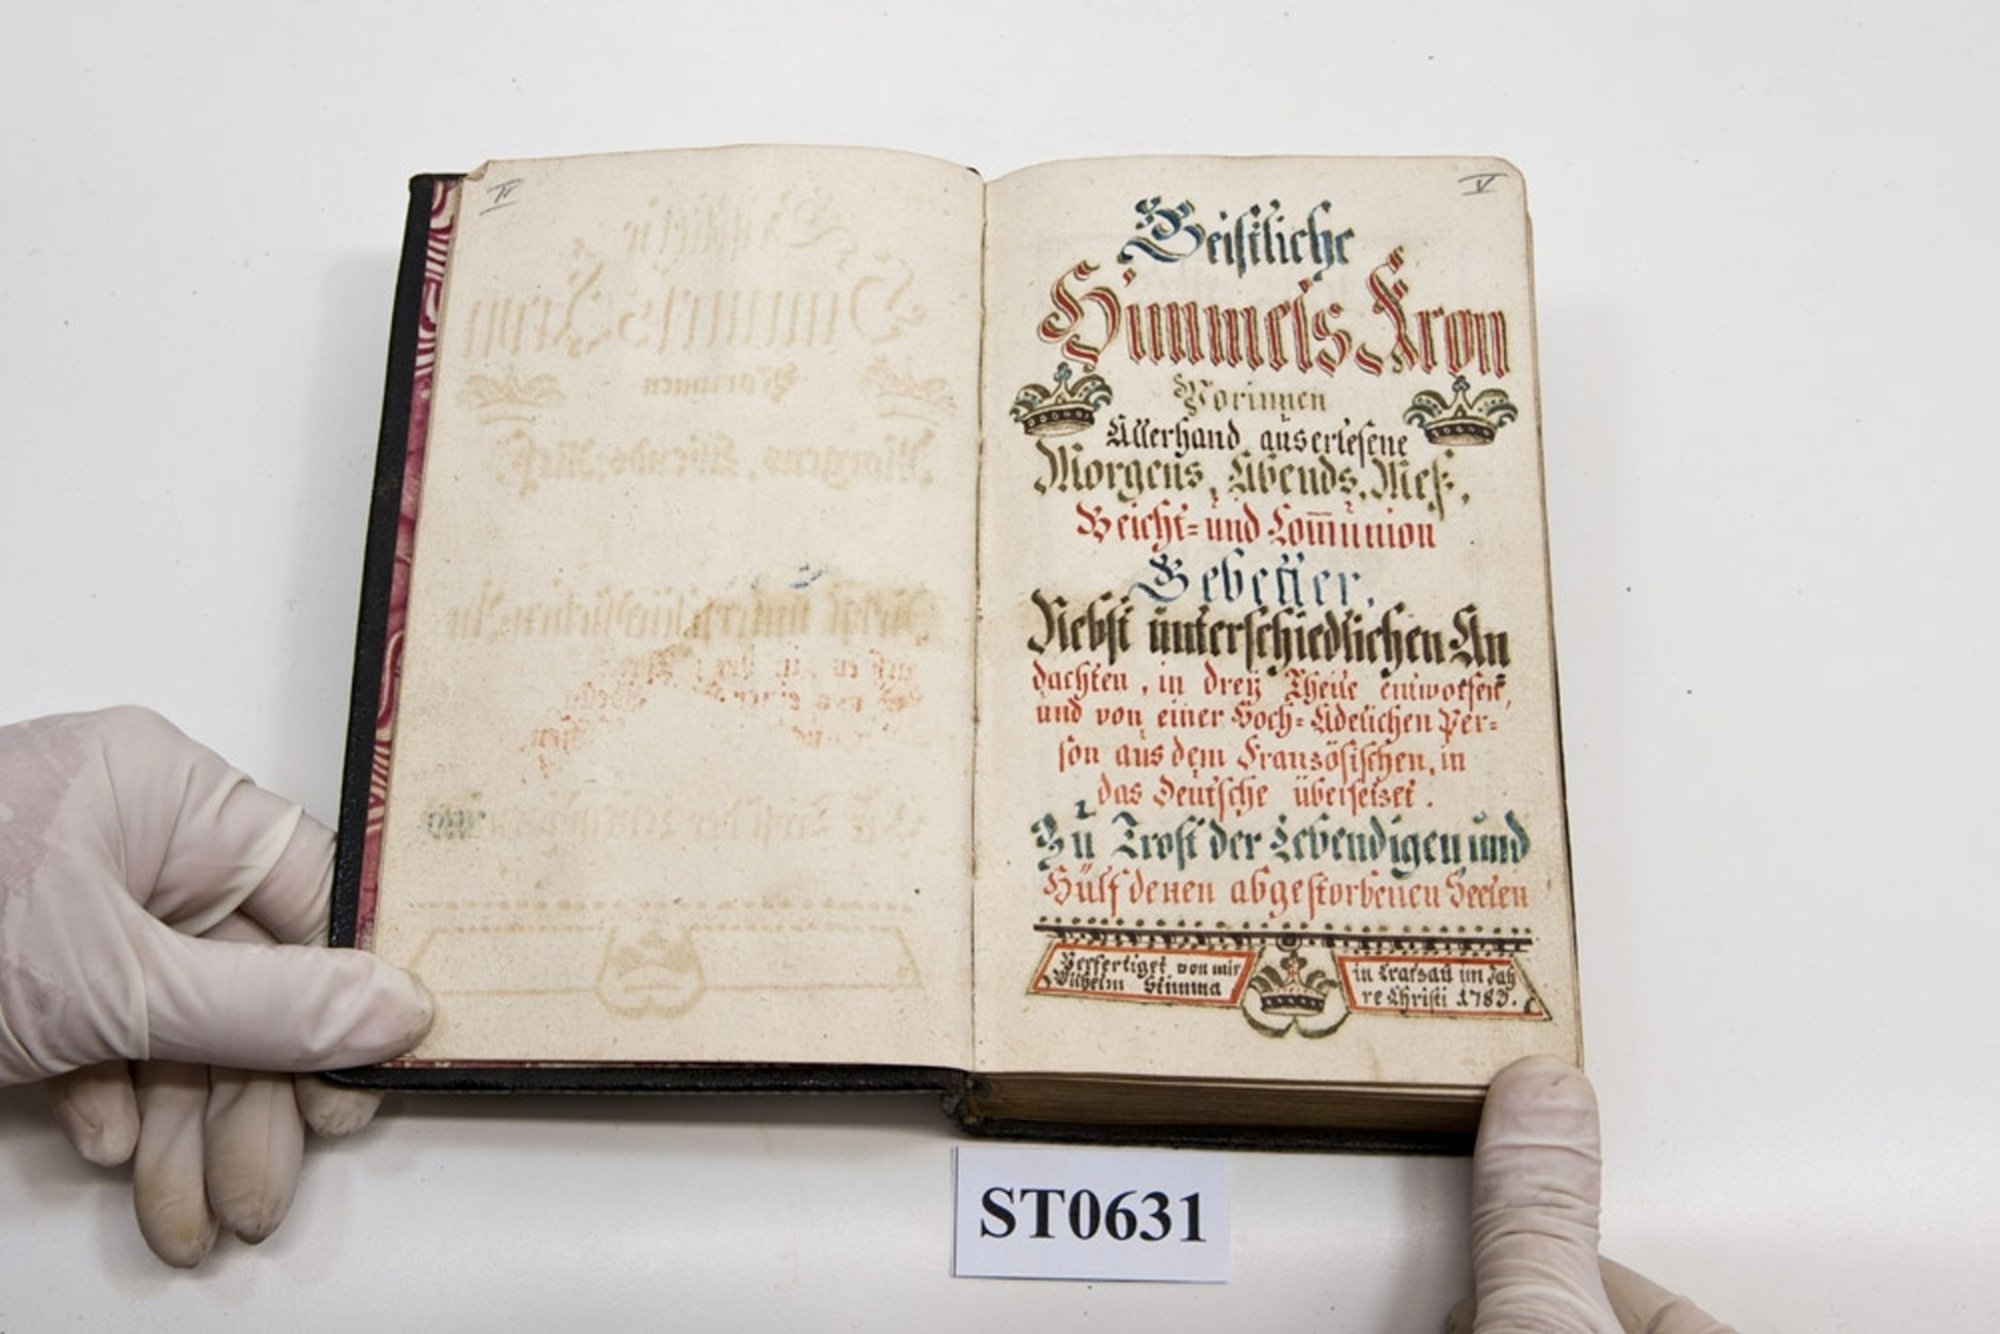 IV
V
Geistliche
Himmels Kron
Worinnen
Allerhand auserlesene
Morgens, Abends, Meß,
Beicht- und Com̅union
Gebetter,
Nebst unterschiedlichen An
dachten, in dreÿ Theile entworfen,
und von einer Hoch-Adelichen Per-
son aus dem Französischen, in
das Deutsche übersetzet.
Zu Trost der Lebendigen und
Hülf denen abgestorbenen Seelen
Verfertiget von mir
Wilhelm
in im Jah
re Christi 1783.
ST0631